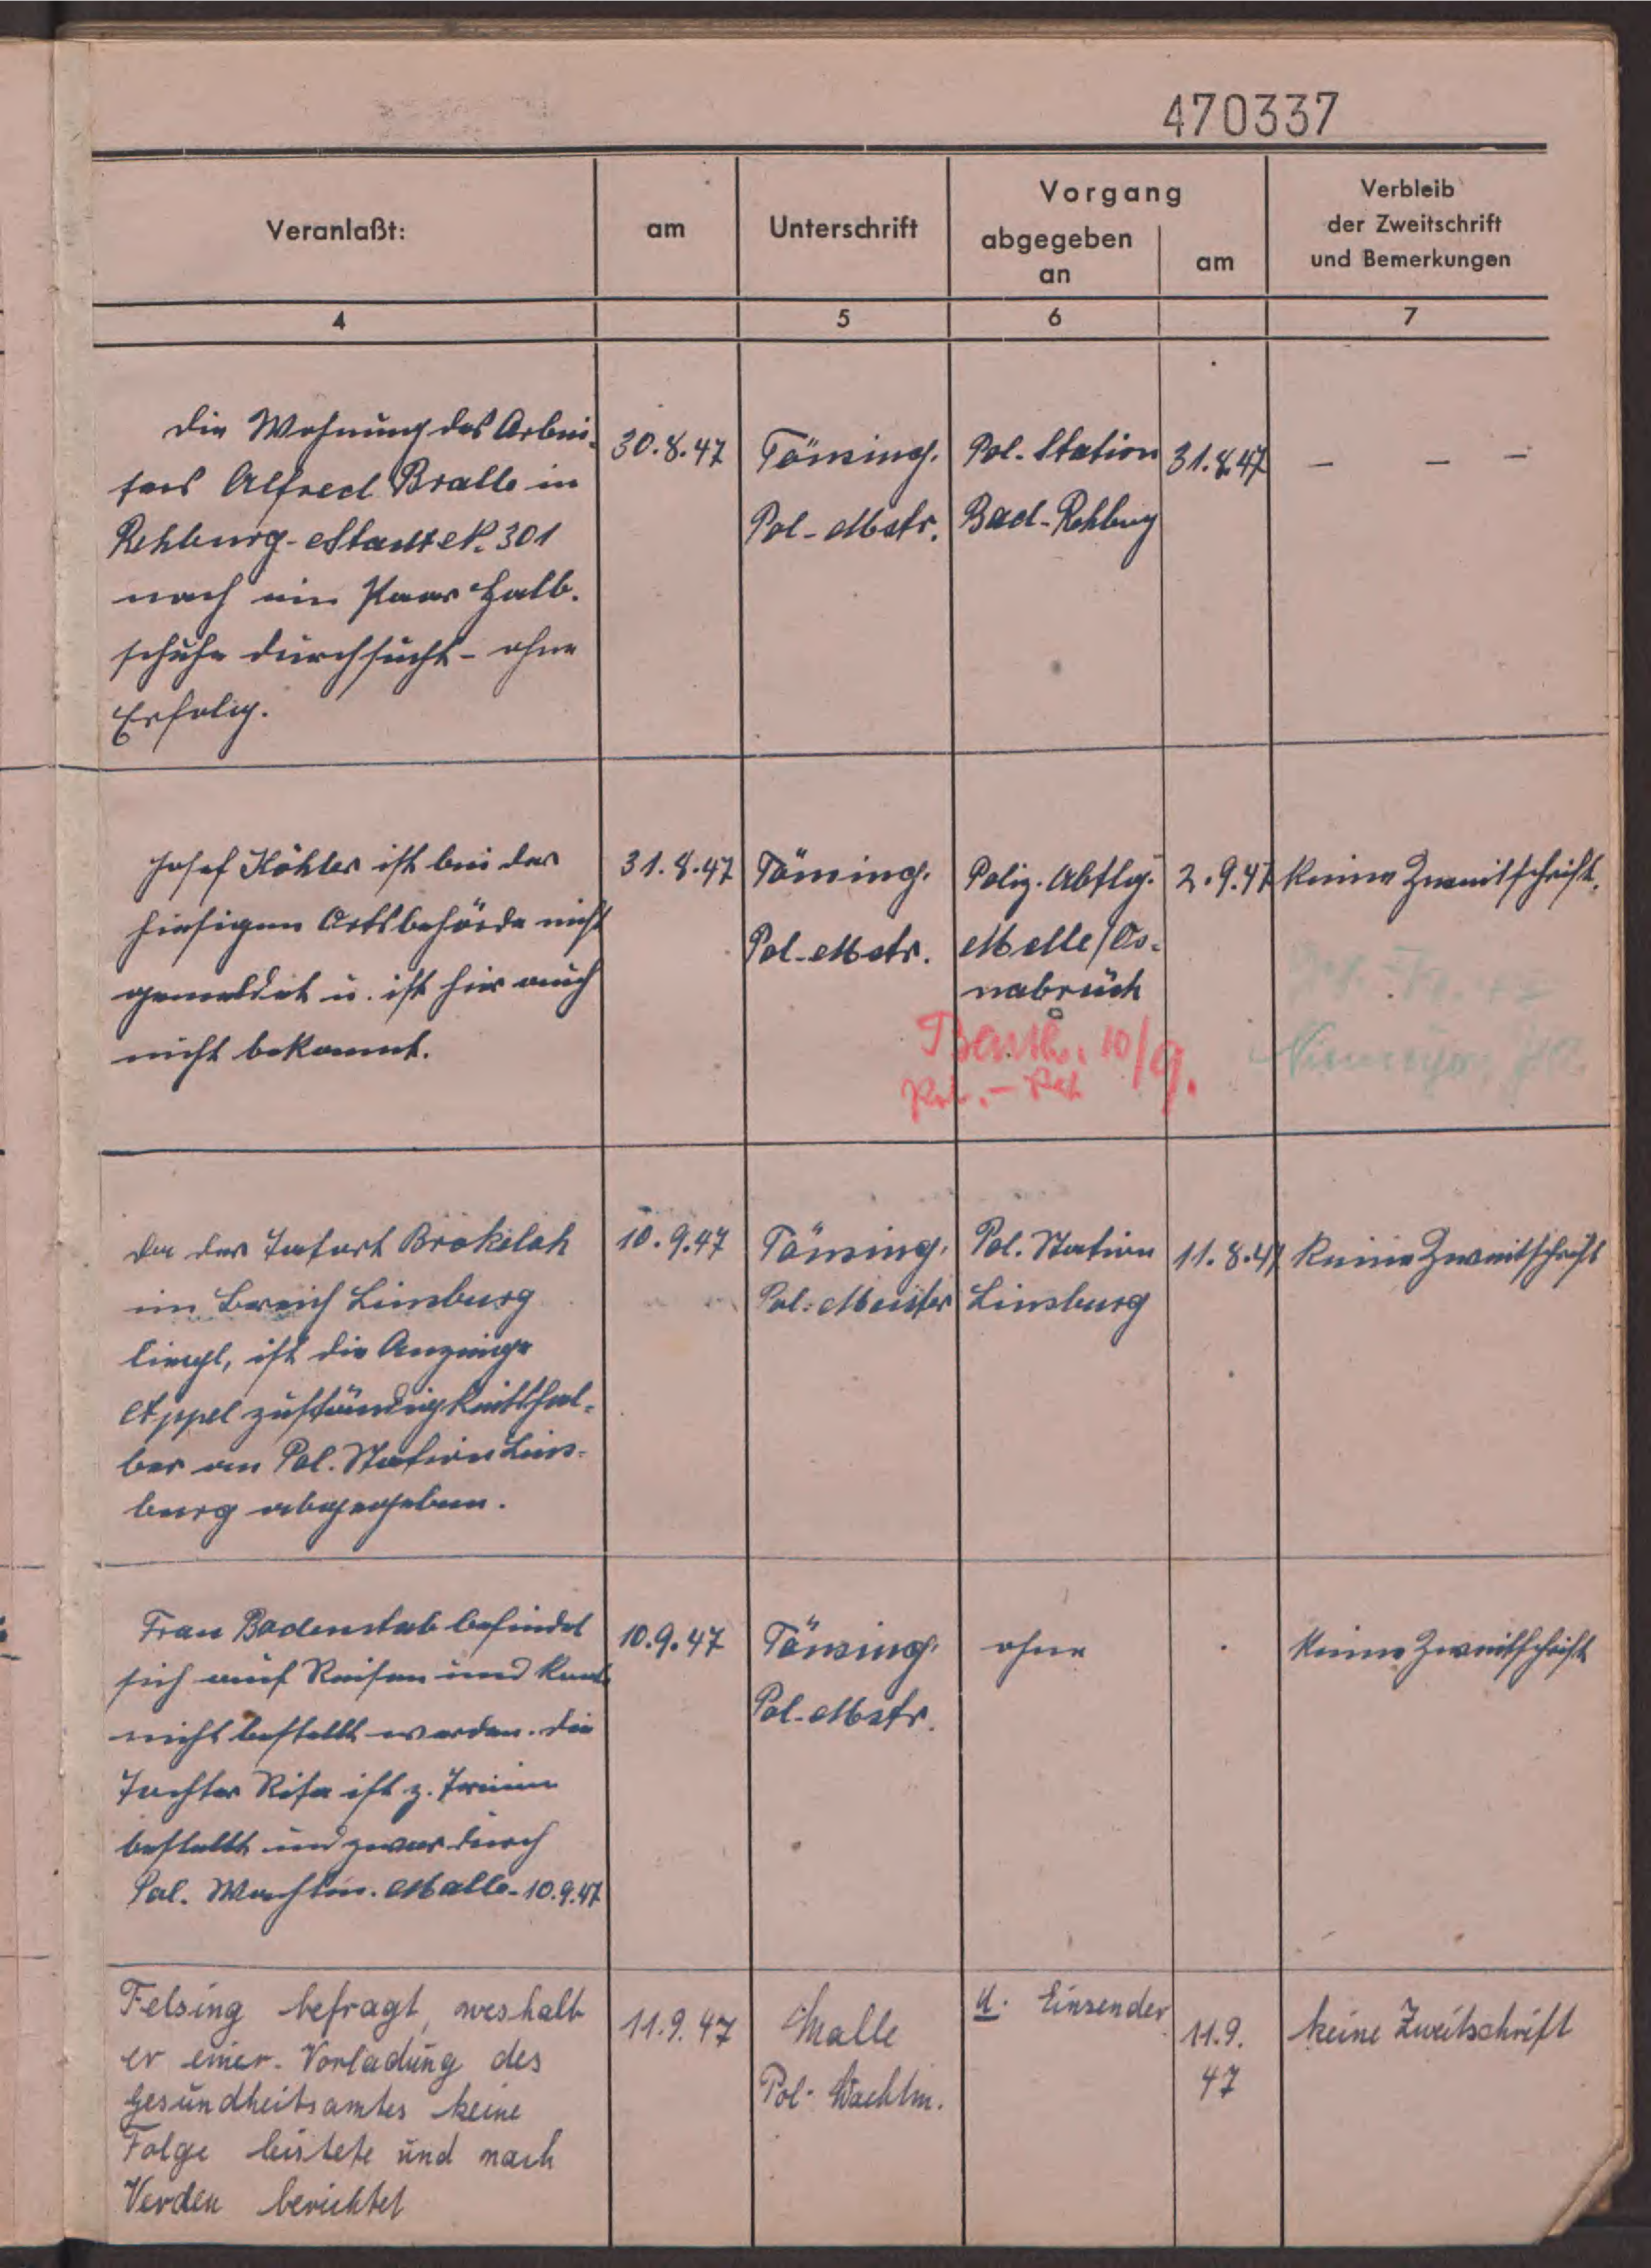 470337
Veranlaßt:
am
Unterschrift
Vorgang
abgegeben
an
am
Verbleib
der Zweitschrift
und Bemerkungen
4
5
6
7
Die Wohnung des Arbei-
ters Alfred Bralle in
Rehburg-Stadt N. 301
nach ein Paar Halb-
schuhe durchsucht - ohne
Erfolg.
30.8.47
Tönsing.
Pol-Mstr.
Pol. Station
Bad-Rehburg
31.8.47
– – –
Josef Köhler ist bei der
hiesigen Ortsbehörde nicht
gemeldet u. ist hier auch
nicht bekannt.
31.8.47
Tönsing.
Pol-Mstr.
Poliz. Abtlg.
Melle/Os-
nabrück
2.9.47
Keine Zweitschrift.
10/9.
Da der Tatort Brokeloh
im Bereich Linsburg
liegt, ist die Anzeige
Appel zuständigkeitshal-
ber an Pol. Station Lins-
burg abgegeben.
10.9.47
Tönsing.
Pol. Meister
Pol. Station
Linsburg
11.8.47
Keine Zweitschrift
Frau Badenstab befindet
sich auf Reisen und kann
nicht bestellt werden. Die
Tochter Rita ist z. Termin
bestellt und zwar durch
Pol. Wachtm. Malle-10.9.47
10.9.47
Tönsing.
Pol-Mstr.
ohne
Keine Zweitschrift
Felsing befragt, weshalb
er einer Vorladung des
Gesundheitsamtes keine
Folge leistete und nach
Verden berichtet
11.9.47
Malle
Pol. Wachtm.
u. Einsender
11.9.
47
keine Zweitschrift